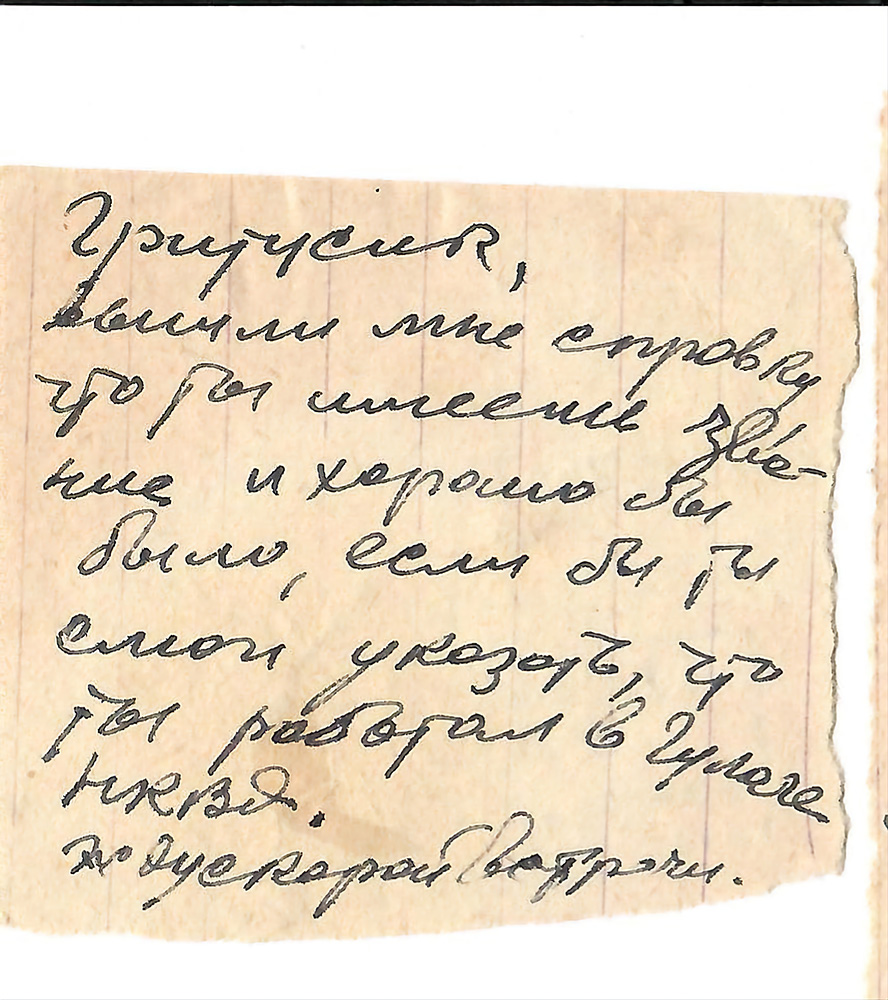 Гритусик,
вышли мне справку
что ты имеешь зва-
ние и хорошо бы
было, если бы ты
смог указать, что
ты работал в Гулаге
НКВД.
Жду скорой встречи.